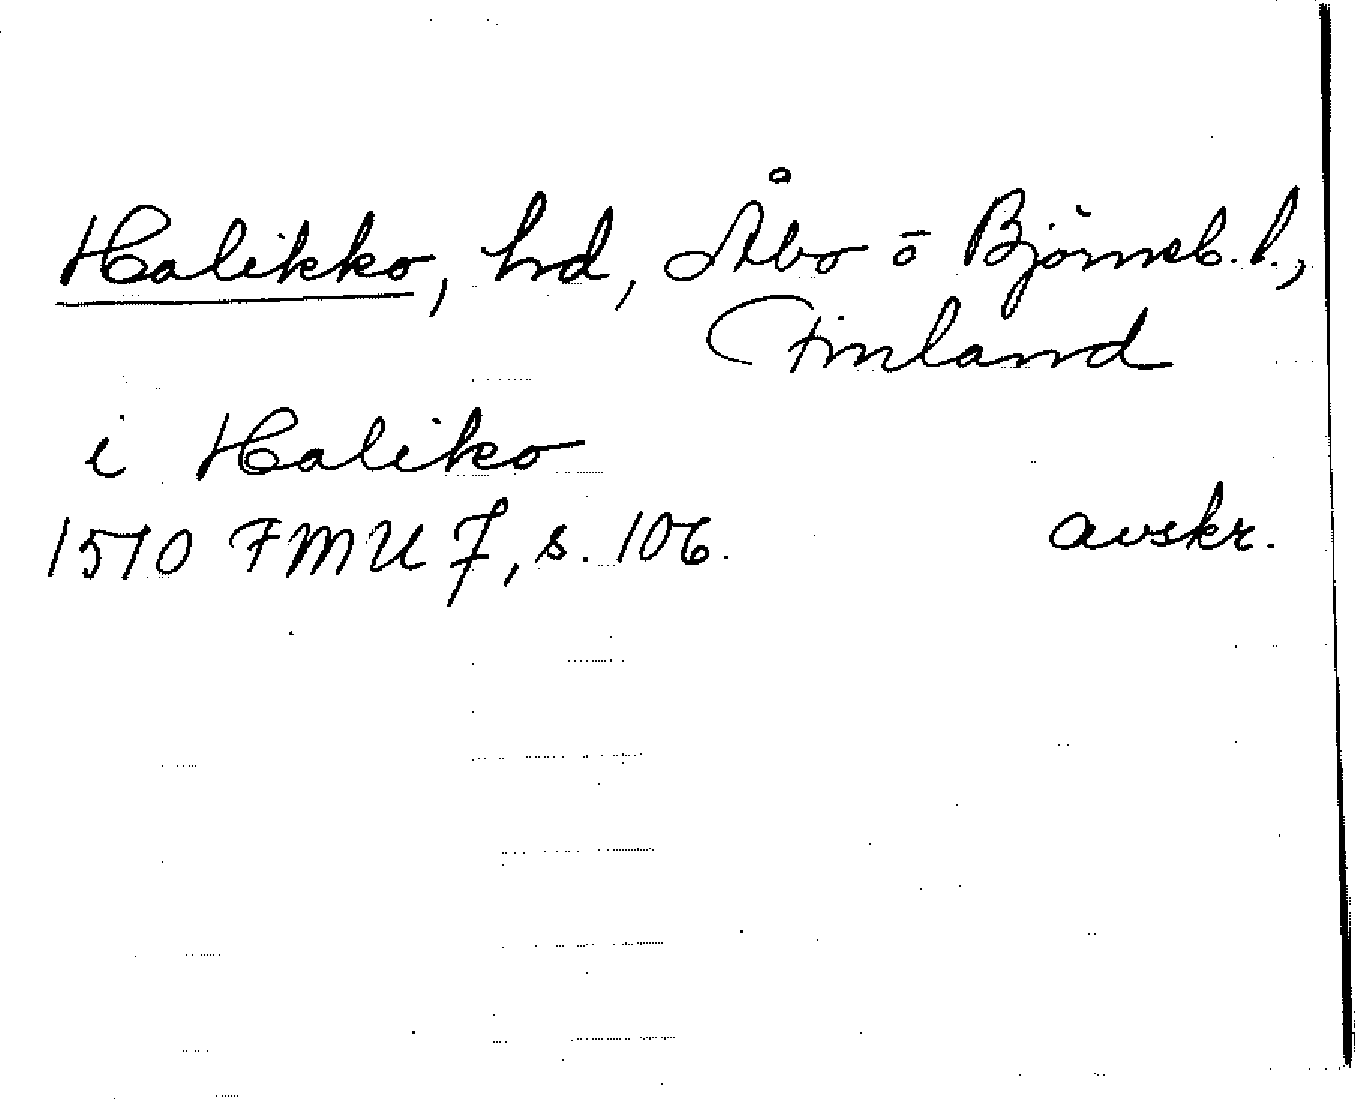 Halikko, hd, Åbo o Björneb. l.,
Finland
i Haliko
1510 FMU 7, s. 106. avskr.